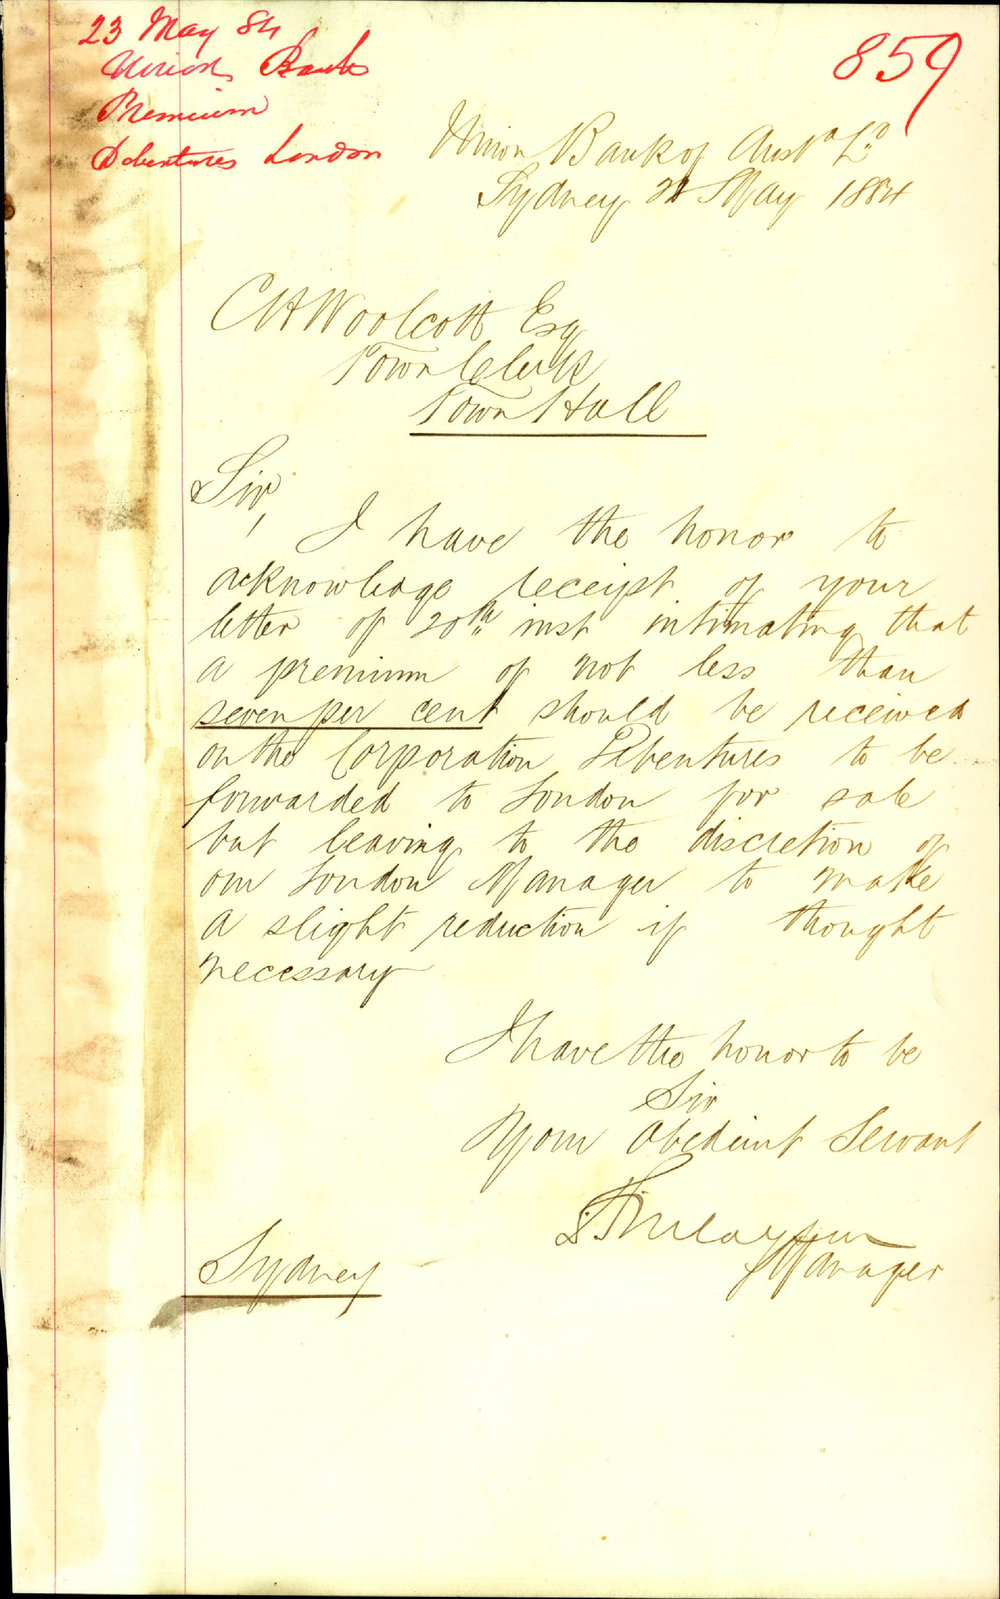 23 May 84
Union Bank
Premium
Debentures London
859
Union Bank of Austa Ld
Sydney 22 May 1884
C H Woolcott Esq
Town Clerk
Town Hall
Sir,
I have the honor to
acknowledge receipt of your
letter of 20th inst intimating that
a premium of not less than
seven per cent should be received
on the Corporation Debentures to be
forwarded to London for sale
but leaving to the discretion of
our London Manager to make
a slight reduction if thought
necessary
I have the honor to be
Sir
Your Obedient Servant
Finlayson
Manager
Sydney